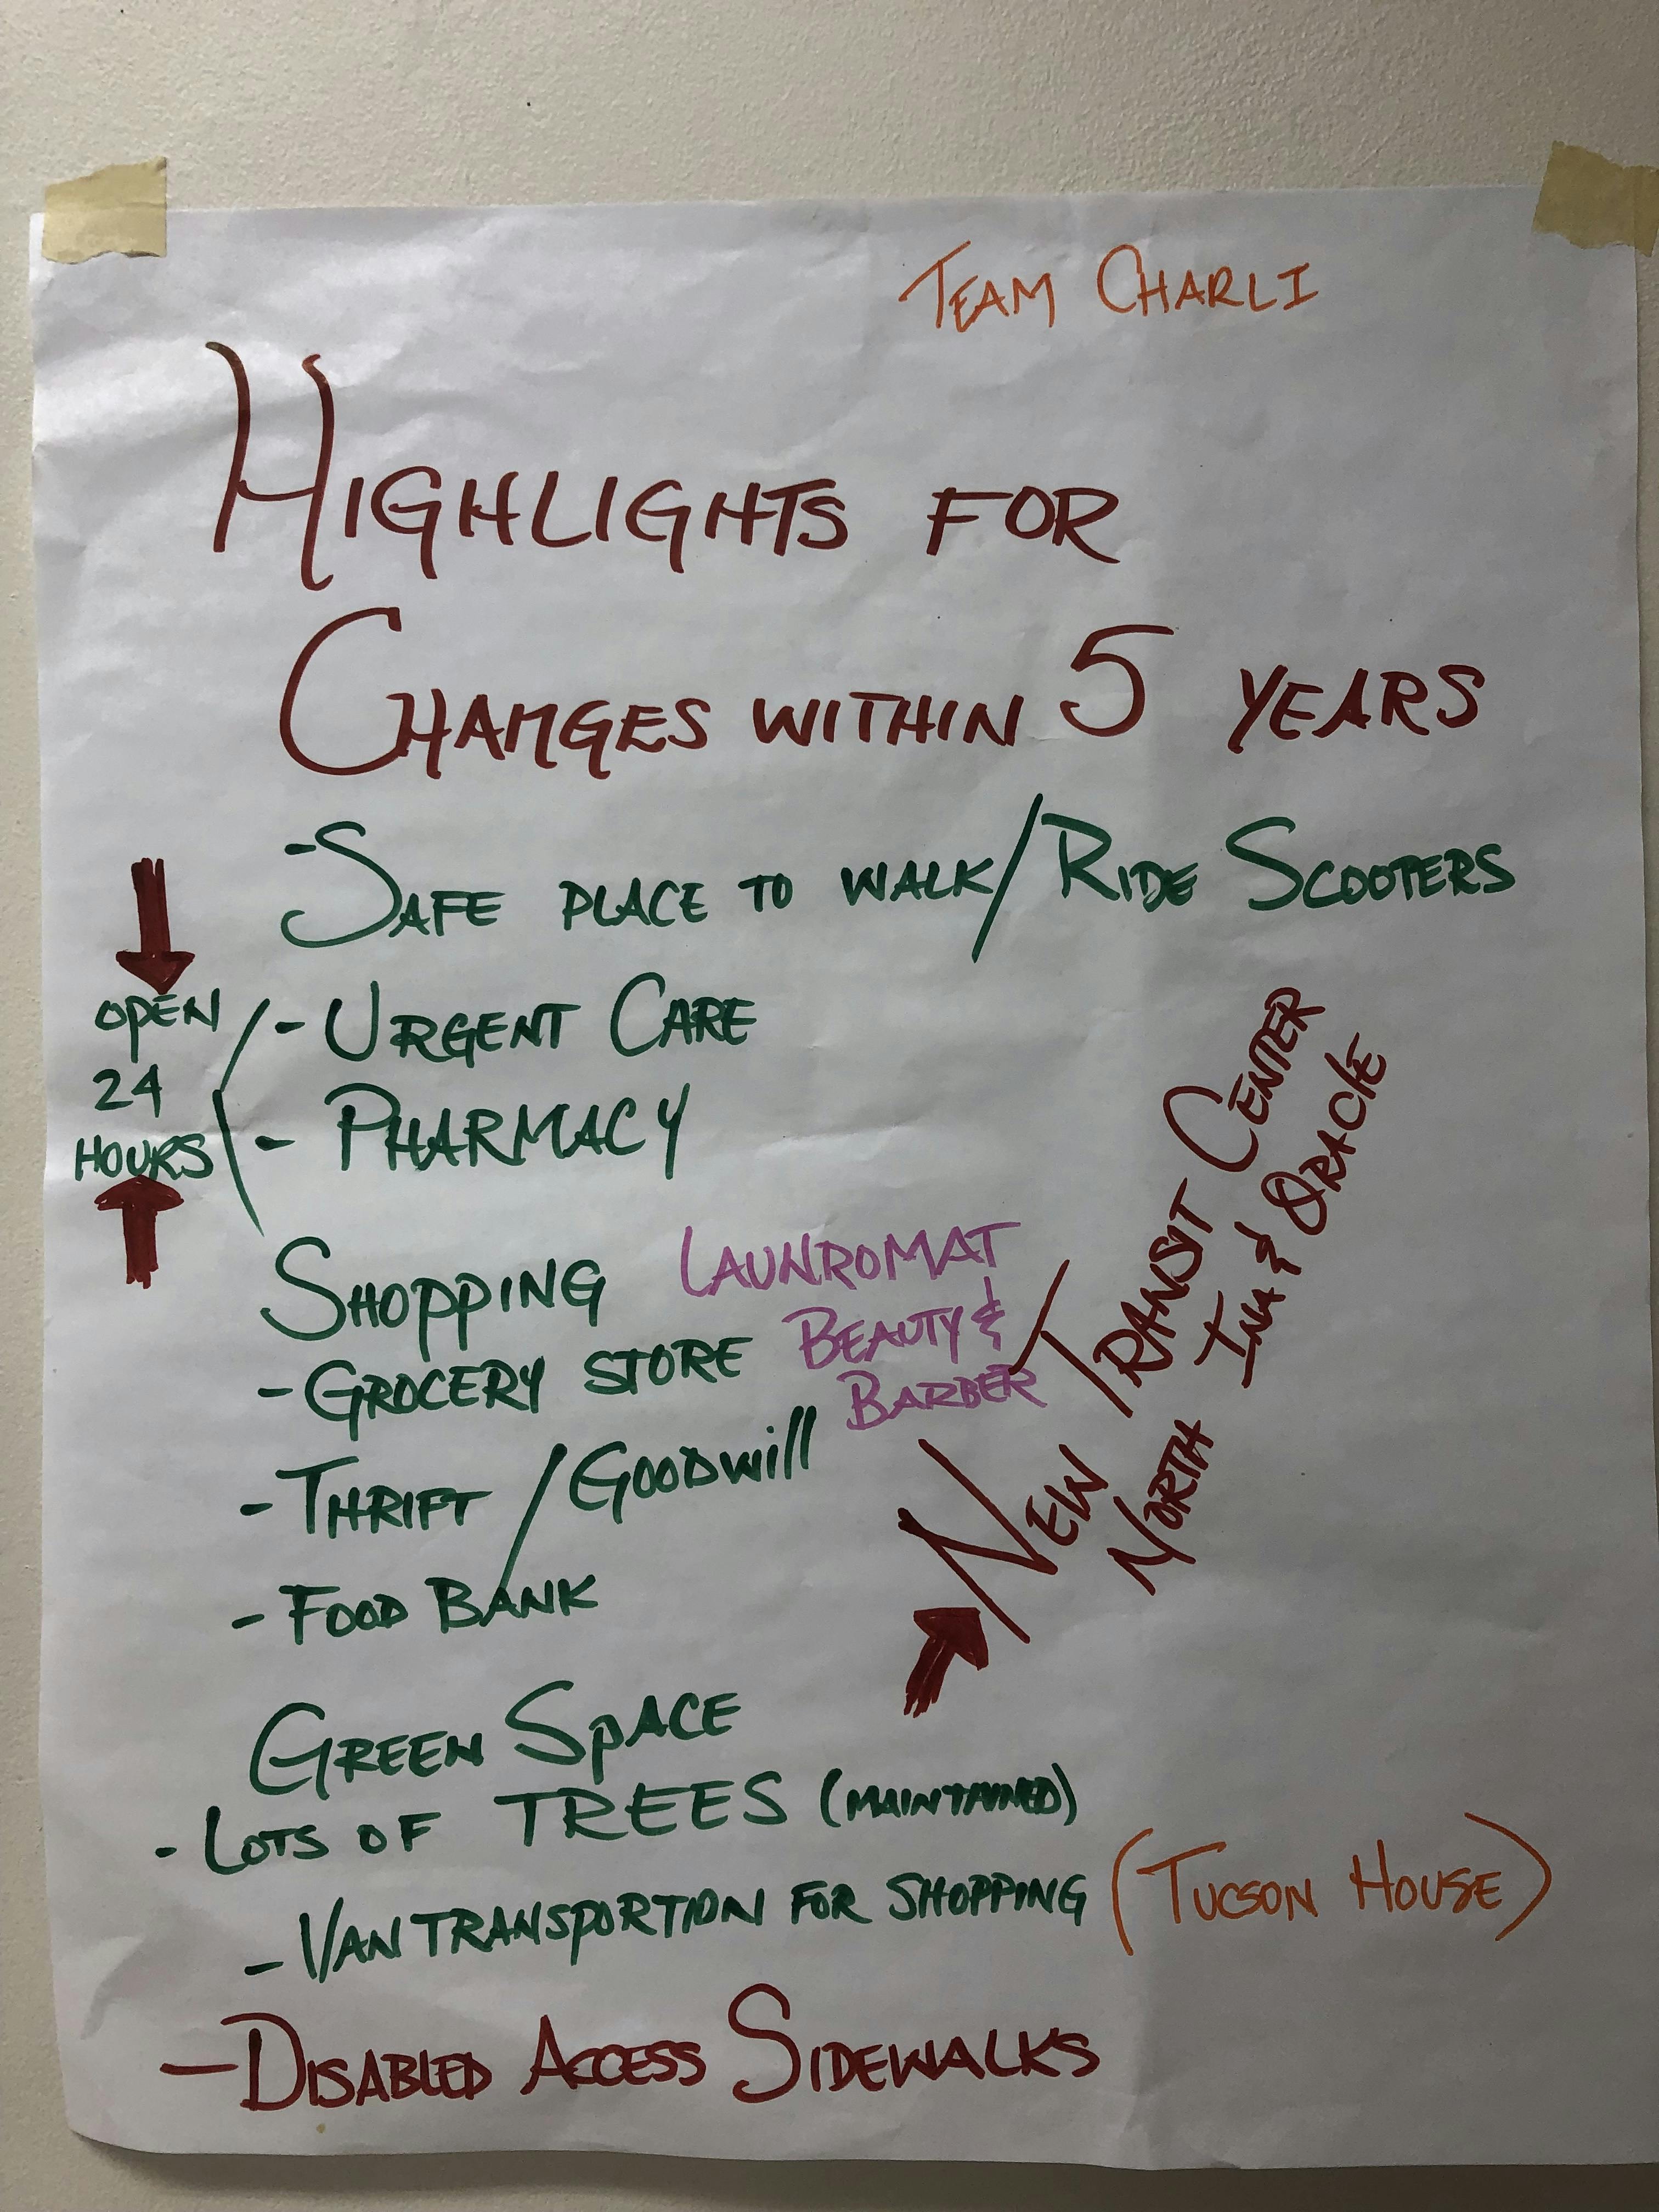 TEAM CHARLI
HIGHLIGHTS FOR
CHANGES WITHIN 5 YEARS
- SAFE PLACE TO WALK/RIDE SCOOTERS
OPEN
24
HOURS
- URGENT CARE
- PHARMACY
SHOPPING
- GROCERY STORE
- THRIFT / GOODWILL
- FOOD BANK
LAUNROMAT
BEAUTY &
BARBER
NEW TRANSIT CENTER
NORTH INA & ORACLE
GREEN SPACE
- LOTS OF TREES (MAINTAINED)
- VAN TRANSPORTION FOR SHOPPING (TUCSON HOUSE)
- DISABLED ACCESS SIDEWALKS